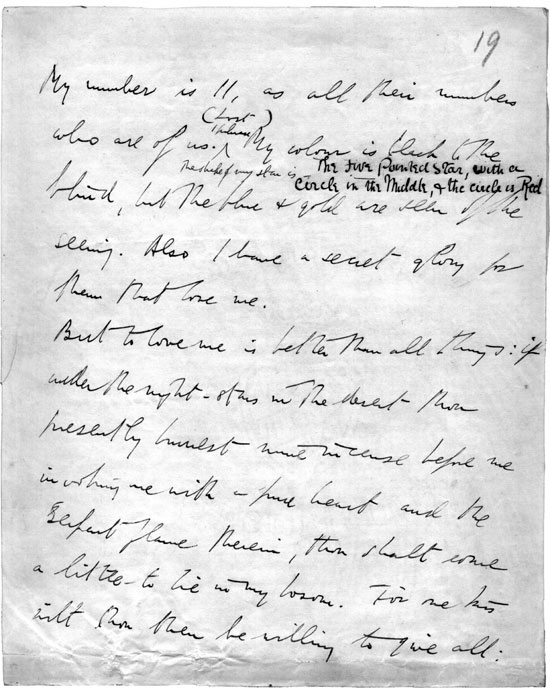 19
My number is 11, as all their numbers
(Lost)
who are of us. My colour is black to the
The shape of my star is — The Five Pointed Star, with a
Circle in the Middle, & the circle is Red
blind, but the blue & gold are seen of the
seeing. Also I have a secret glory for
them that love me.
But to love me is better than all things: if
under the night-stars in the desert thou
presently burnest mine incense before me
invoking me with a pure heart and the
Serpent flame therein, thou shalt come
a little to lie in my bosom. For one kiss
wilt thou then be willing to give all: